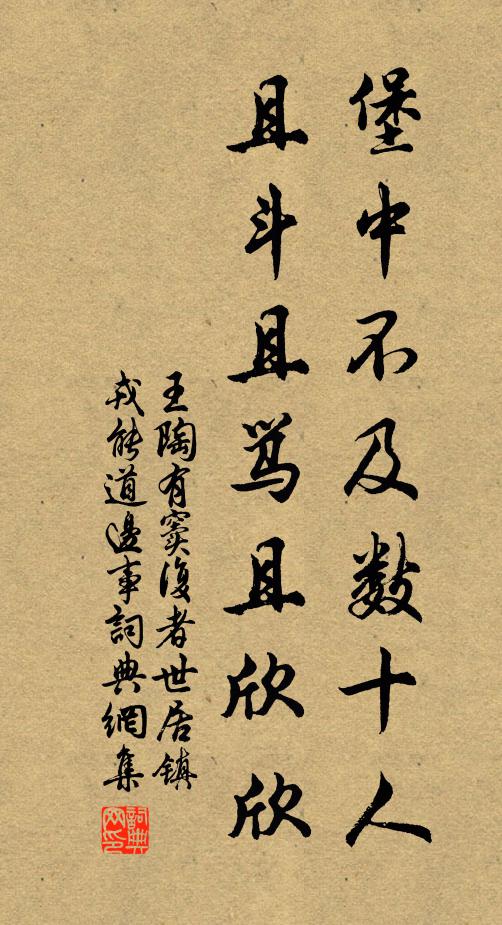 堡中不及数十人
且斗且骂且欣欣
王陶有窦復者世居镇
戎能道邊事詞典網集
詞典
网印